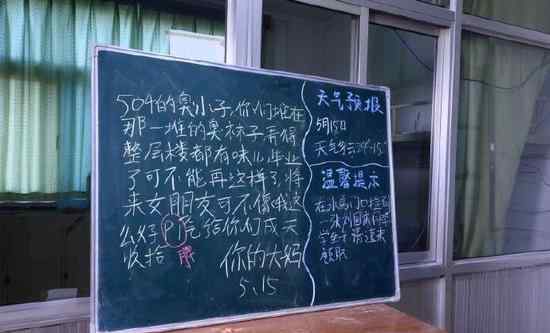 504的臭小子,你们堆在
那一堆的臭袜子弄得
整层楼都有味儿,毕业
了可不能再这样了,将
来女朋友可不像我这
么好PI气给你们成天
收拾
你的大妈
5、15
天气预报
5月15日
天气多云24-15°
温馨提示
在水房门口捡到
学生卡请速来
领取